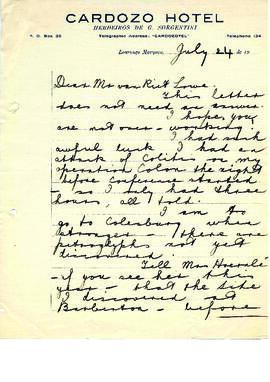 CARDOZO HOTEL
HERDEIROS DE G. SORGENTINI
P. O. Box 35 Telegraphic Address: "CARDOZOTEL" Telephone 134
Lourenço Marques, July 24 de 19
Dear Mr van Riet Lowe,
This letter
does not need an answer.
I hope you
are not over-working. I
I had such
awful luck. I had an
attack of Colitis on my
operation Colon the night
before conference started
- so I only had three
hours, all told.
I am to
go to Colesburg when
stronger - there are
petroglyphs not yet
discovered.
Tell Mrs Hoernlé
- if you see her this
year - that the site
I discovered at
Barberton - before